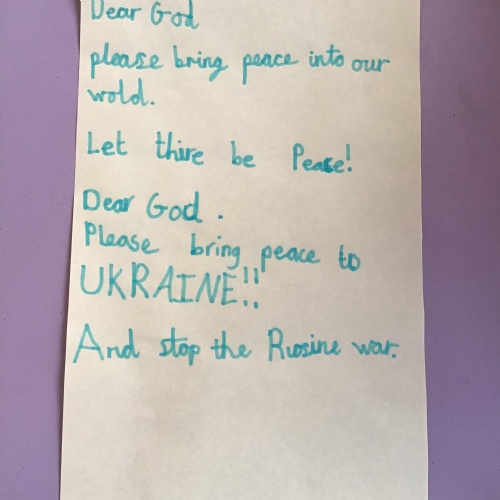 Dear God
please bring peace into our
wold.
Let thire be Peace!
Dear God.
Please bring peace to
UKRAINE!!
And stop the Rusine war.